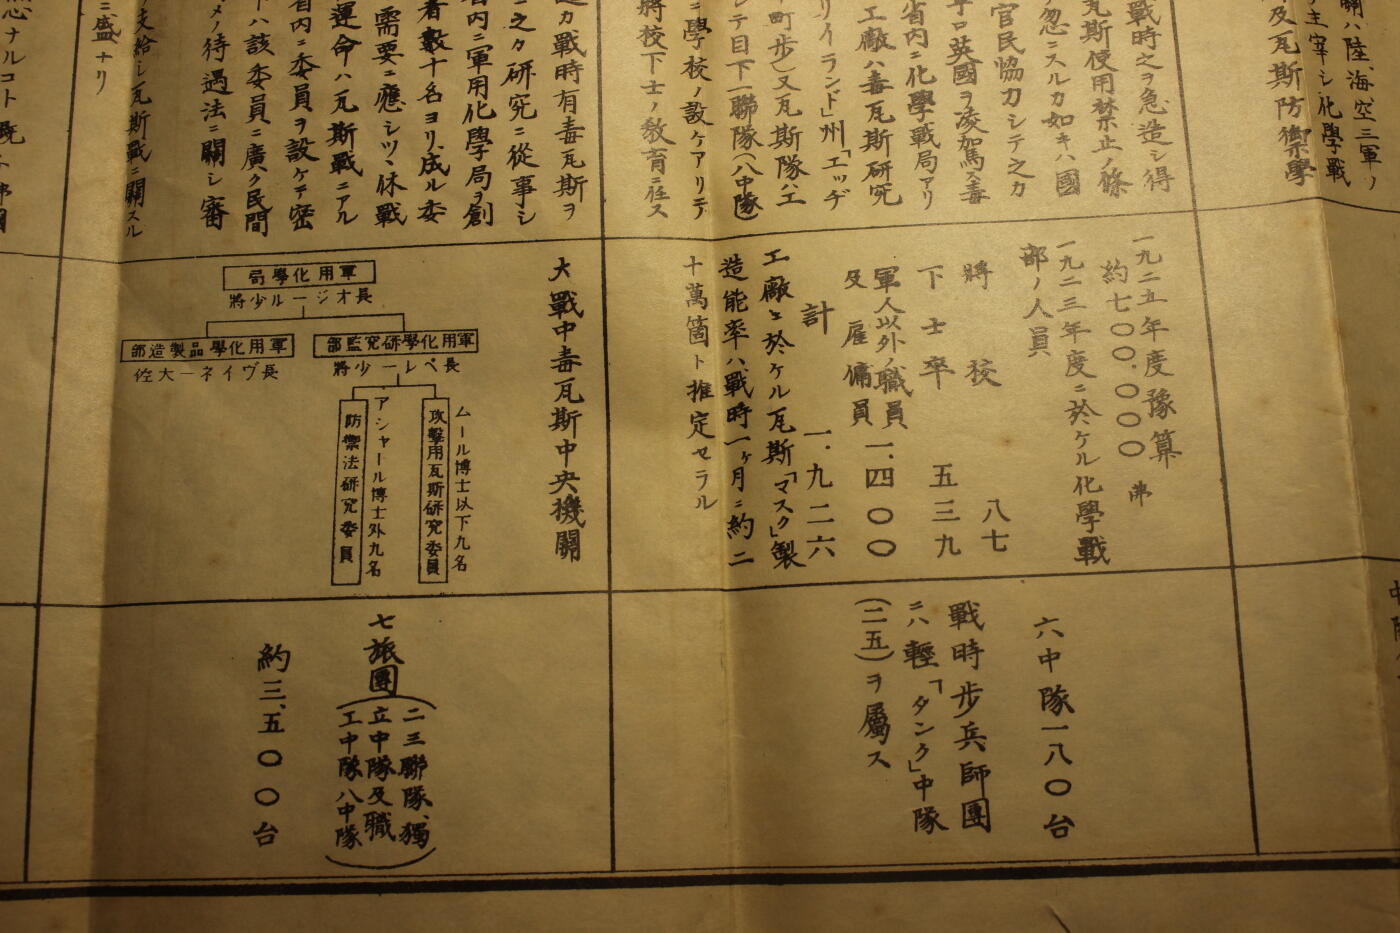 關ハ陸、海、空三軍ノ
主宰シ化學戰
及瓦斯防禦學
戰時之ヲ急造シ得
瓦斯使用禁止ノ條
忽ニスルカ如キハ國
官民協力シテ之カ
英國ヲ凌駕ス毒
省內ニ化學戰局アリ
工廠ハ毒瓦斯研究
リイランド」州「エッヂ
町歩)又瓦斯隊ハエ
テ目下一聯隊(八中隊)
ニ學校ノ設ケアリテ
將校下士ノ敎育ニ任ス
一九二五年度豫算
約七〇〇.〇〇〇弗
一九二三年度ニ於ケル化學戰
部ノ人員
將校 八七
下士卒 五三九
軍人以外ノ職員
及雇傭員 一.四〇〇
計 一.九二六
工廠ニ於ケル瓦斯「マスク」製
造能率ハ、戰時一ヶ月ニ約二
十萬箇ト推定セラル
六中隊一八〇台
戰時步兵師團
ニハ輕「タンク」中隊
(二五)ヲ屬ス
カ戰時有毒瓦斯ヲ
之カ研究ニ從事シ
省內ニ軍用化學局ヲ創
者數十名ヨリ成ル委
需要ニ應シツヽ休戰
運命ハ瓦斯戰ニアル
省內ニ委員ヲ設ケテ密
ハ該委員ニ廣ク民間
メ待遇法ニ關シ審
支給シ瓦斯戰ニ關スル
ニ盛ナリ
大戰中毒瓦斯中央機關
軍用化學局
長オジール少將
軍用化學研究監部
長ペレー少將
軍用化學品製造部
長ヴイネー大佐
ムール博士以下九名
攻擊用瓦斯研究委員
アシャール博士外九名
防禦法研究委員
七旅團
(二三聯隊、獨
立中隊及職
工中隊八中隊)
約三、五〇〇台